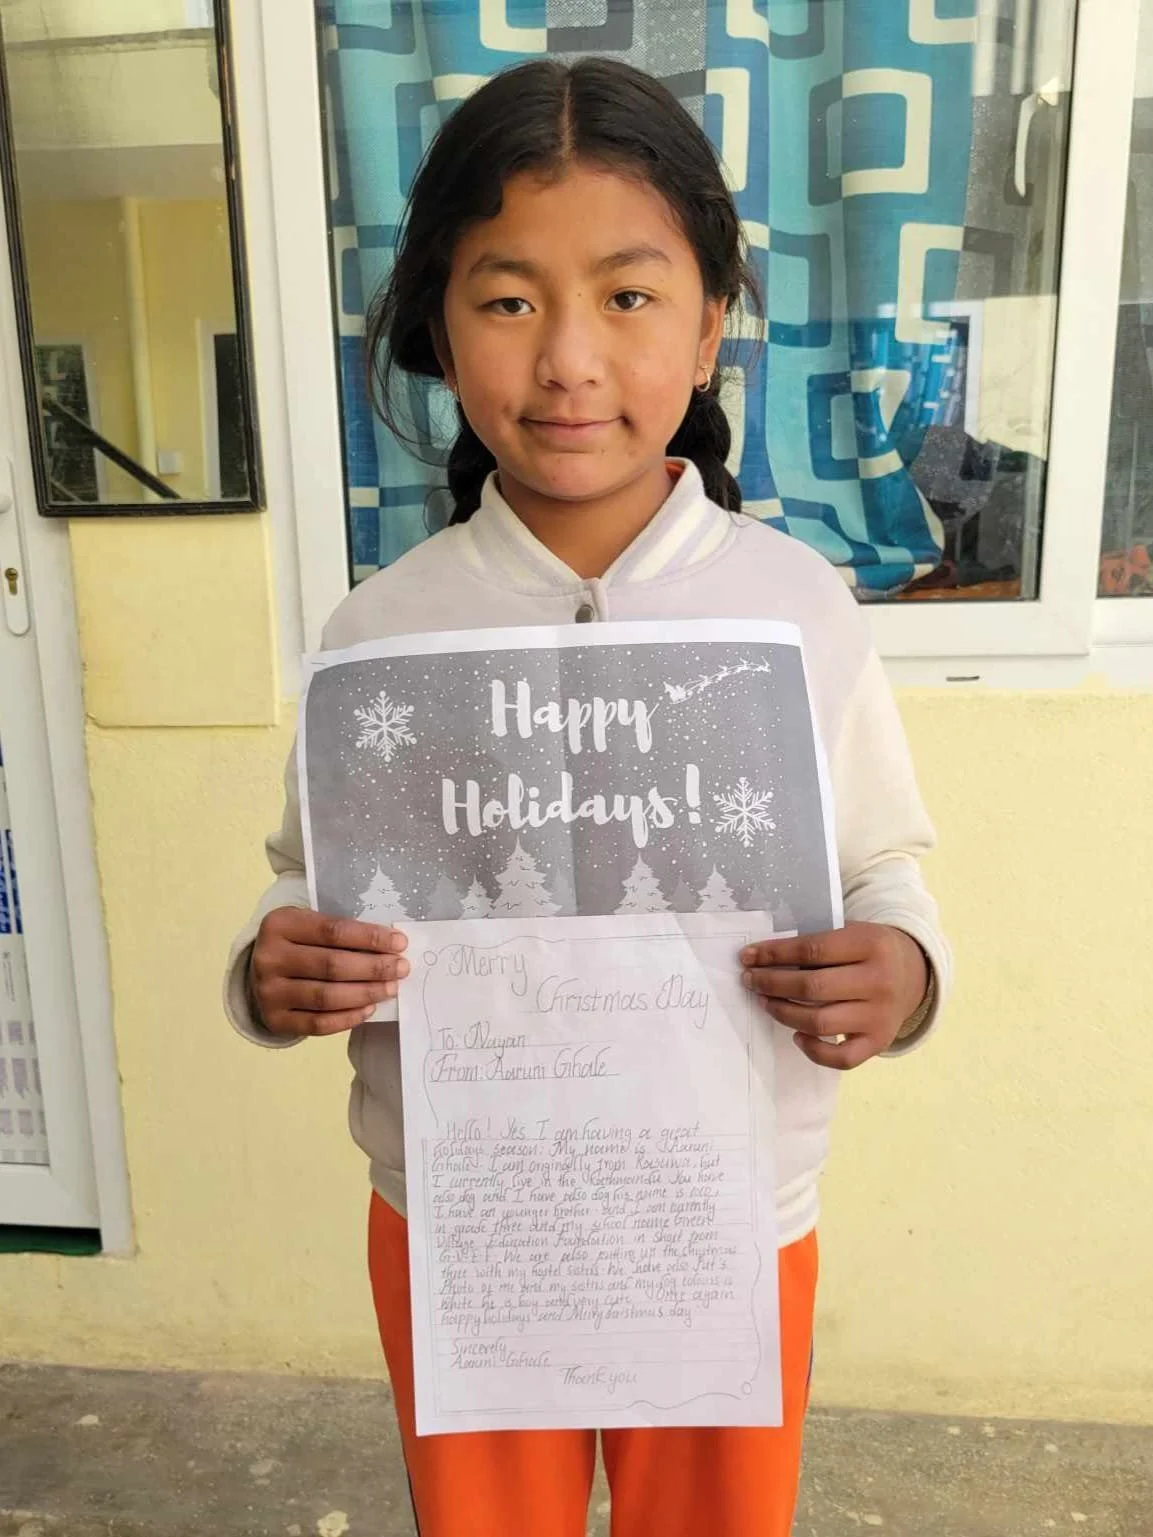 Happy
Holidays!
Merry
Christmas Day
To: Nayan
From: Aaruni Ghale
Hello! Yes I am having a great
holidays season. My name is Aaruni
Ghale. I am originally from Rasuwa, but
I currently live in the Kathmandu. You have
also dog and I have also dog his name is coco,
I have an younger brother and I am currently
in grade three and my school name Green
Village Education Foundation in short from
G.V.E.F. We are also putting up the christmas
three with my hostel sisters. We have also
Photo of me and my sisters and my dog colours is
white he is boy and very cute. Once again
happy holidays and day
Sincerely
Aaruni Ghale
Thank you